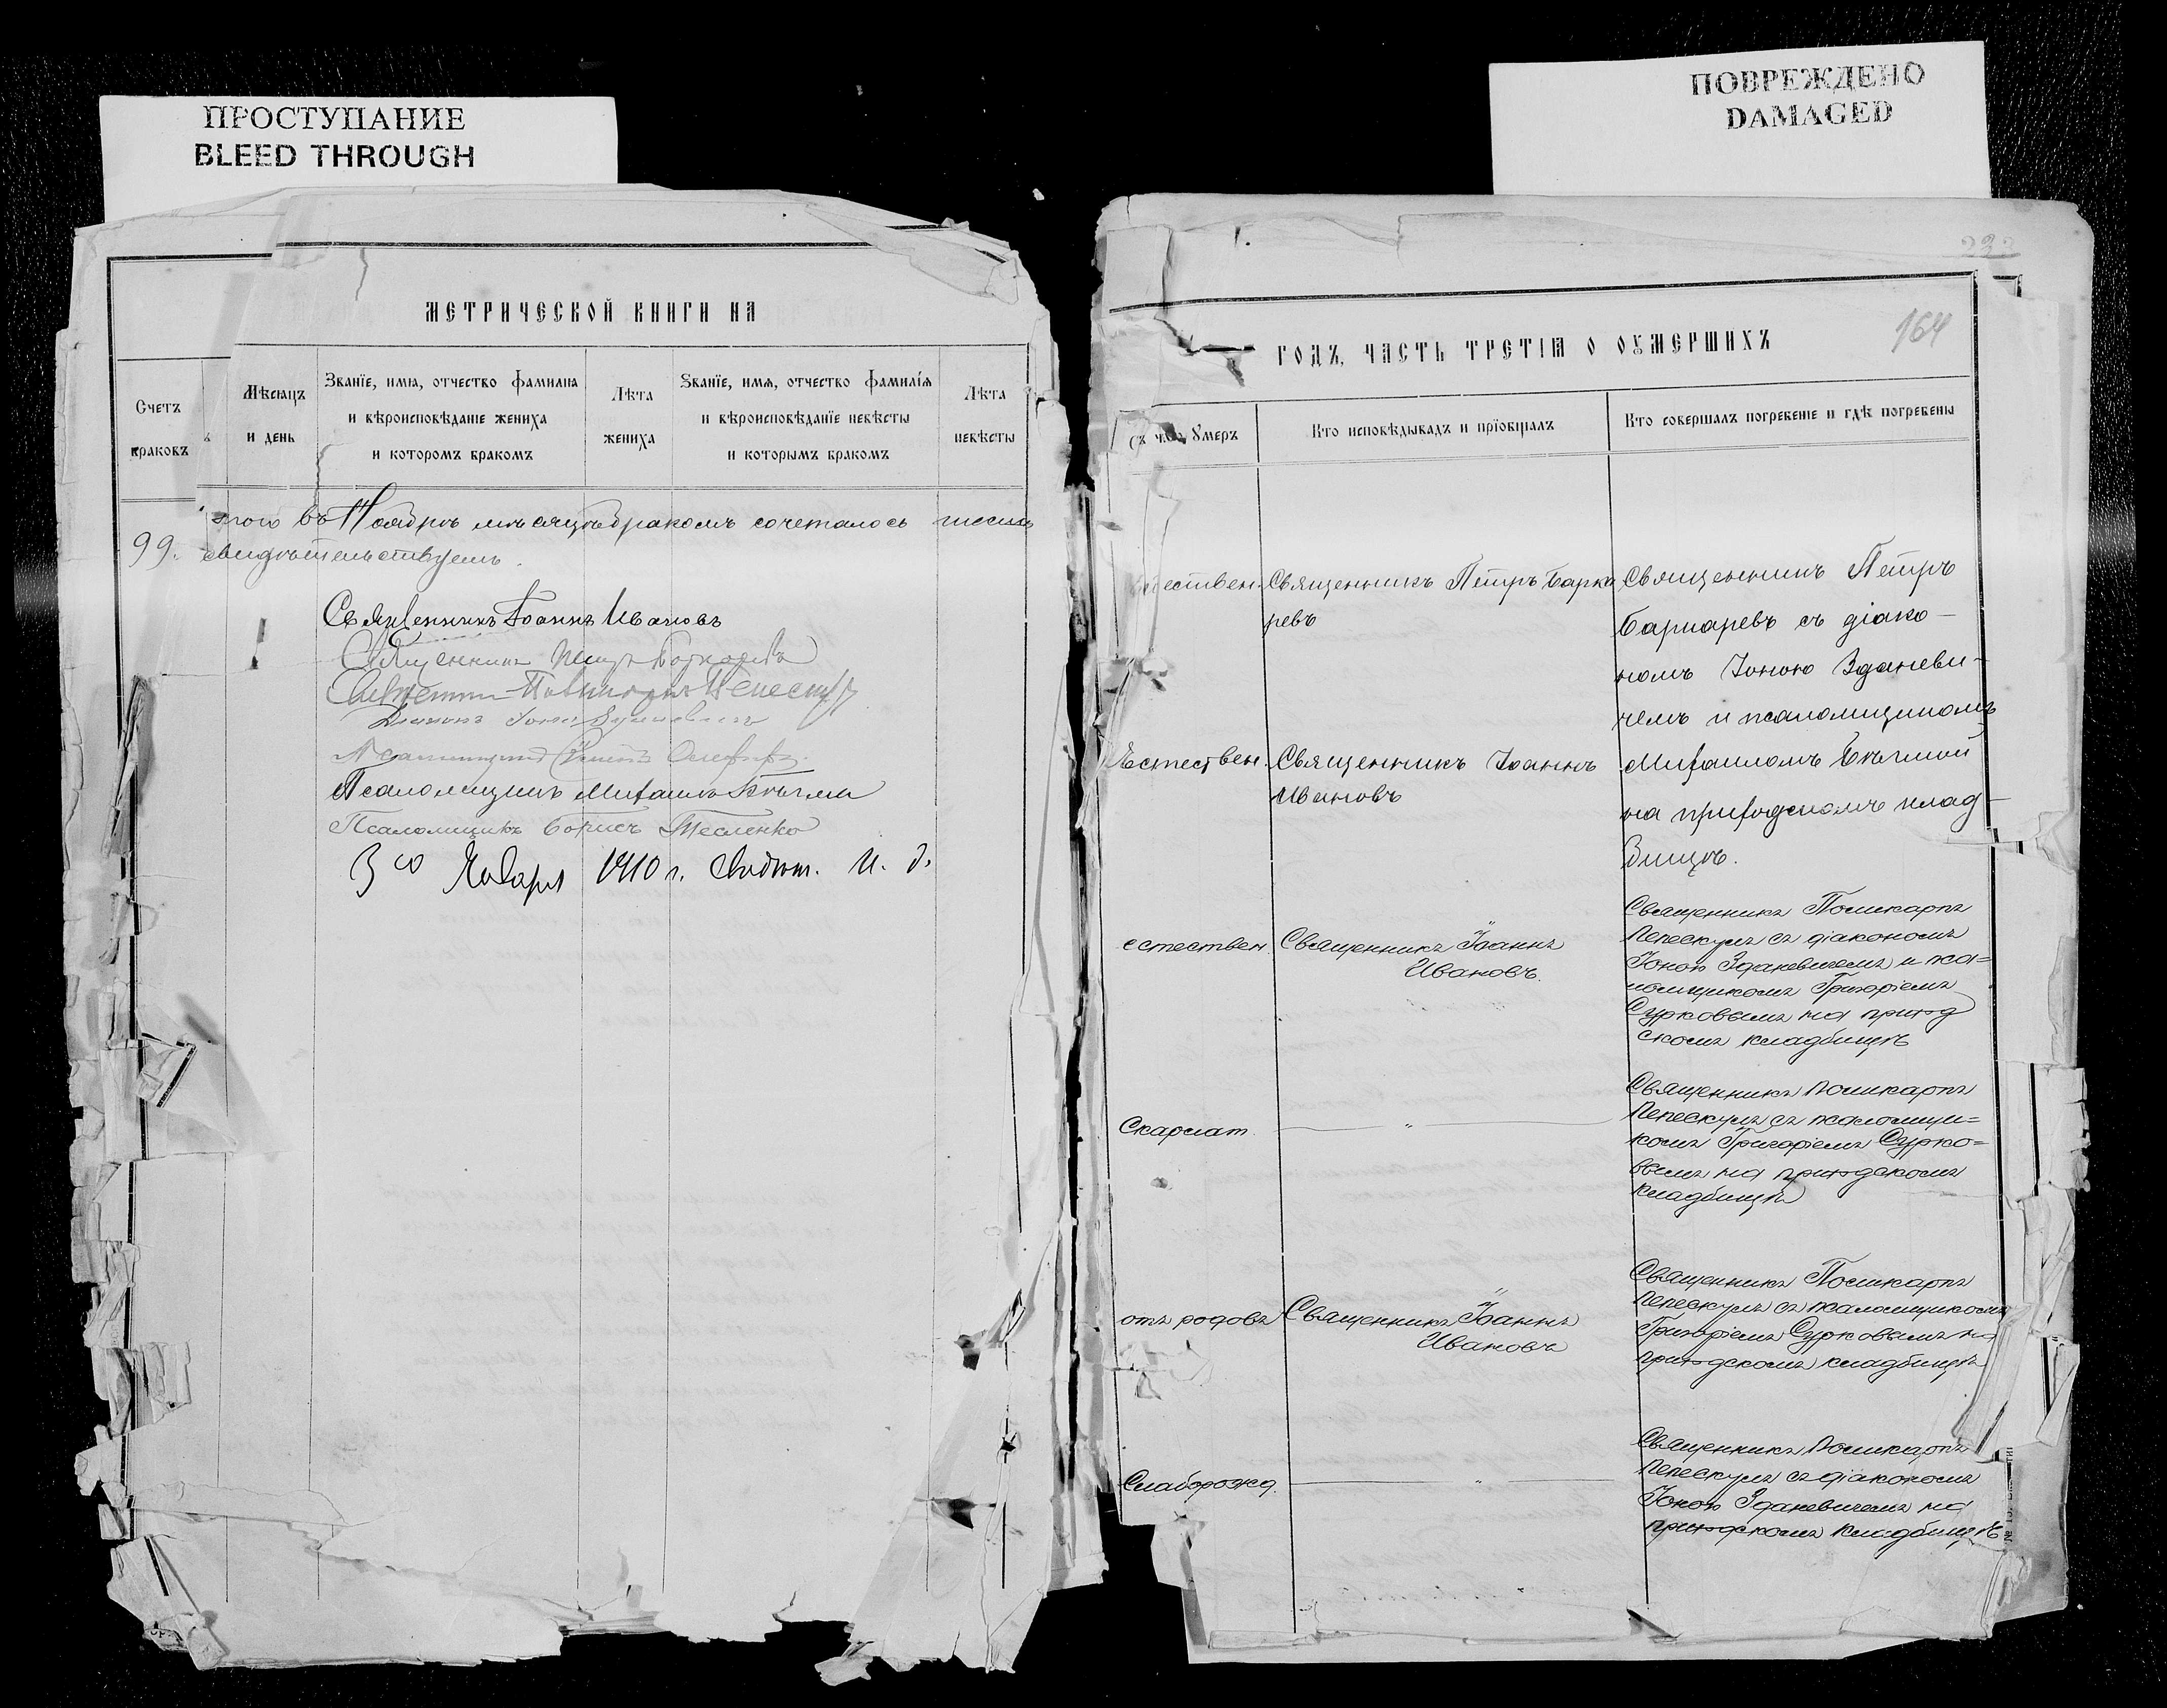 ПРОСТУПАНИЕ
BLEED THROUGH
МЕТРИЧЕСКОЙ КНИГИ НА
Счетъ
браковъ
Мѣсяцъ
и день
Званїе, имя, отчество фамилїя
и вѣроисповѣданїе жениха
и которомъ бракомъ
Лѣта
жениха
Званїе, имя, отчество фамилїя
и вѣроисповѣданїе невѣсты
и которымъ бракомъ
Лѣта
невѣсты
въ Ноябрѣ мѣсяцѣ бракомъ сочеталось
99. свидѣтельствуемъ.
Священникъ Іоаннъ Ивановъ
Священникъ Петръ
Священникъ Поликарпъ
Діаконъ Іона Зданевичъ
Псаломщикъ
Псаломщикъ Михаилъ
Псаломщикъ Борисъ Тесленко
Января 1910 г. И. д.
ПОВРЕЖДЕНО
DAMAGED
232
164
ГОДЪ, ЧАСТЬ ТРЕТІѦ О ОУМЕРШИХЪ
чего Умеръ
Кто исповѣдывалъ и прїобщалъ
Кто совершалъ погребенїе и гдѣ погребены
ествен. Священникъ Петръ Барка
ревъ
Священникъ Петръ
Баркаревъ съ діако-
номъ Іоною Зданеви-
чемъ и псаломщикомъ
Михаиломъ
на приходскомъ клад-
бищѣ.
Естествен. Священникъ Іоаннъ
Ивановъ
естествен. Священникъ Іоаннъ
Ивановъ.
Священникъ Поликарпъ
съ діакономъ
Іоною Зданевичемъ и пса=
ломщикомъ Григоріемъ
Сурковымъ на приход
скомъ кладбищѣ
Скарлат. "
Священникъ Поликарпъ
съ псаломщи=
комъ Григоріемъ Сурко=
вымъ на приходскомъ
кладбищѣ
отъ родовъ Священникъ Іоаннъ
Ивановъ
Священникъ Поликарпъ
съ псаломщикомъ
Григоріемъ Сурковымъ на
приходскомъ кладбищѣ
Слаборожд. "
Священникъ Поликарпъ
съ діакономъ
Іоною Зданевичемъ на
приходскомъ кладбищѣ